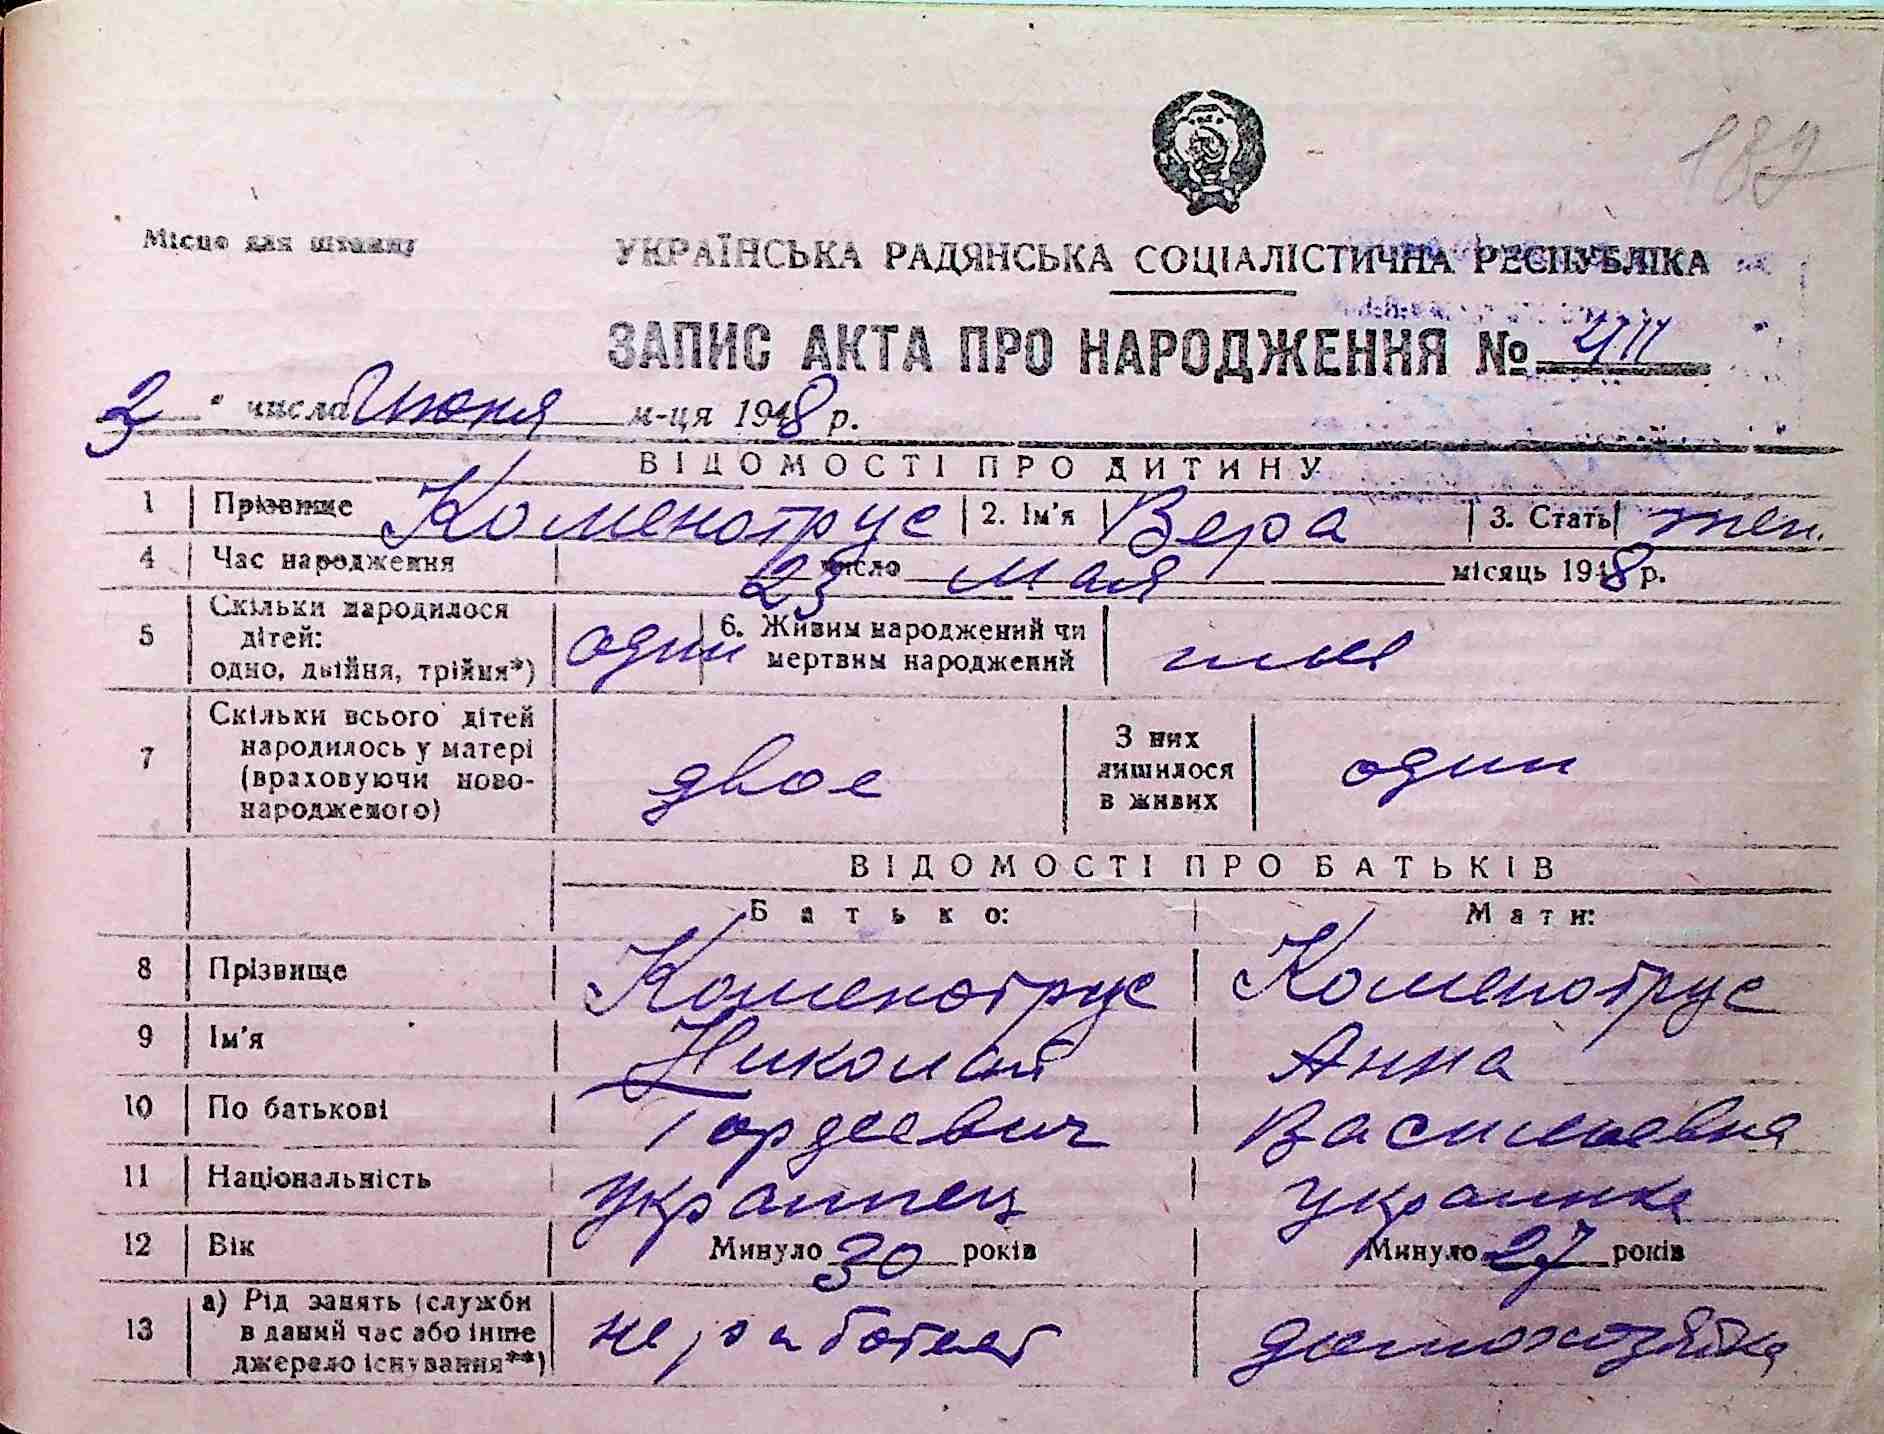 187
Місце для штампу
УКРАЇНСЬКА РАДЯНСЬКА СОЦІАЛІСТИЧНА РЕСПУБЛІКА
ЗАПИС АКТА ПРО НАРОДЖЕННЯ №
3 " числа Июня м-ця 1948 р.
ВІДОМОСТІ ПРО ДИТИНУ
1 Прізвище Коменотрус 2. Ім'я Вера 3. Стать жен.
4 Час народження 23 число мая місяць 1948 р.
5 Скільки народилося дітей: одно, двійня, трійня*) один 6. Живим народжений чи мертвим народжений
7 Скільки всього дітей народилось у матері (враховуючи новонародженого) двое З них лишилося в живих один
ВІДОМОСТІ ПРО БАТЬКІВ
Батько: Мати:
8 Прізвище Коменотрус Коменотрус
9 Ім'я Николай Анна
10 По батькові Гордеевич Васильевна
11 Національність украинец украинка
12 Вік Минуло 30 років Минуло 27 років
13 а) Рід занять (служби в даний час або інше джерело існування**) не работает домохозяйка